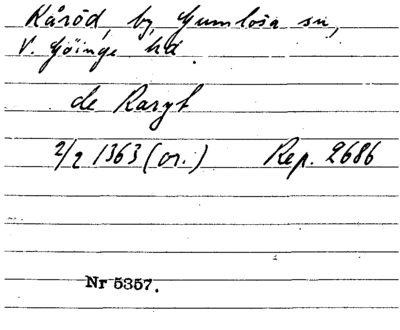 Råröd, by, Gumlösa sn,
V. Göinge hd.
de Raryt
2/2 1363 (or.) Rep. 2686
Nr 5357.